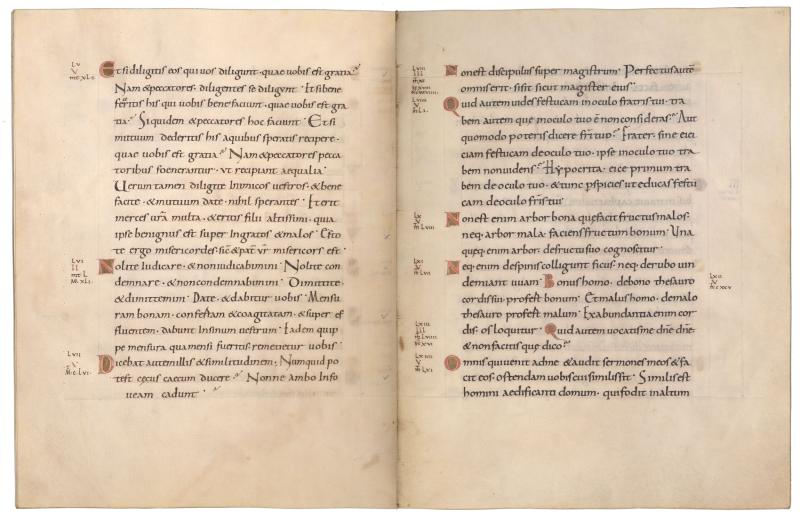 LV
V
mt XL
Et si diligitis eos qui vos diligunt · quae vobis est gratia
Nam & peccatores · diligentes se diligunt · Et si bene
feceritis his qui vobis bene faciunt · quae vobis est gra
tia · Si quidem & peccatores hoc faciunt · Et si
mutuum dederitis his a quibus speratis recipere ·
quae vobis est gratia · Nam & peccatores pecca
toribus foenerantur · ut recipiant aequalia ·
Uerum tamen diligite inimicos vestros · & bene
facite · & mutuum date · nihil sperantes · Et erit
merces vra multa · & eritis filii altissimi · quia
ipse benignus est super ingratos & malos · Esto
te ergo misericordes · sic & pat vr misericors est ·
LVI
II
mt L
Nolite iudicare · & non iudicabimini · Nolite con
demnare · & non condemnabimini · Dimittite ·
& dimittemini · Date · & dabitur vobis · Mensu
ram bonam · confertam & coagitatam · & super ef
fluentem · dabunt in sinum vestrum · Eadem quip
pe mensura qua mensi fueritis remetietur vobis ·
LVII
V
Mt LVI
Dicebat autem illis & similitudinem · Numquid po
test cecus caecum ducere · Nonne ambo in fo
ueam cadunt ·
LVIII
III
Non est discipulus super magistrum · Perfectus autē
omnis erit · si sit sicut magister eius ·
LVIIII
V
mt LI
Quid autem vides festucam in oculo fratris tui · tra
bem autem que in oculo tuo ē non consideras · Aut
quomodo poteris dicere fri tuo · Frater · sine eici
am festucam de oculo tuo · ipse in oculo tuo tra
bem non videns · Hypocrita · eice primum tra
bem de oculo tuo · & tunc pspicies ut educas festu
cam de oculo fris tui ·
LX
V
mt LVIII
Non est enim arbor bona que facit fructus malos ·
neq · arbor mala · faciens fructum bonum · Una
queq · enim arbor · de fructu suo cognoscitur ·
LXI
V
mt LVI
Neq · enim de spinis colligunt ficus · neq · de rubo vin
demiant uuam · Bonus homo · de bono thesauro
LXII
V
mt CXXV
cordis sui profert bonum · Et malus homo · de malo
thesauro profert malum · Ex abundantia enim cor
dis · os loquitur · Quid autem vocatis me dne · dne ·
LXIII
III
mt LVIIII
& non facitis que dico ·
LXIIII
V
mt LXI
Omnis qui venit ad me & audit sermones meos & fa
cit eos · ostendam vobis cui similis sit · Similis est
homini aedificanti domum · qui fodit in altum